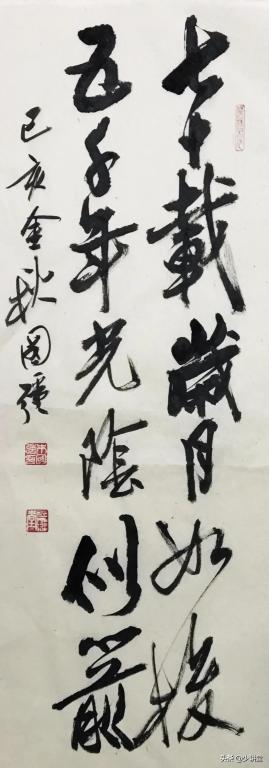 七十載歲月如梭
五千年光陰似箭
己亥金秋國强